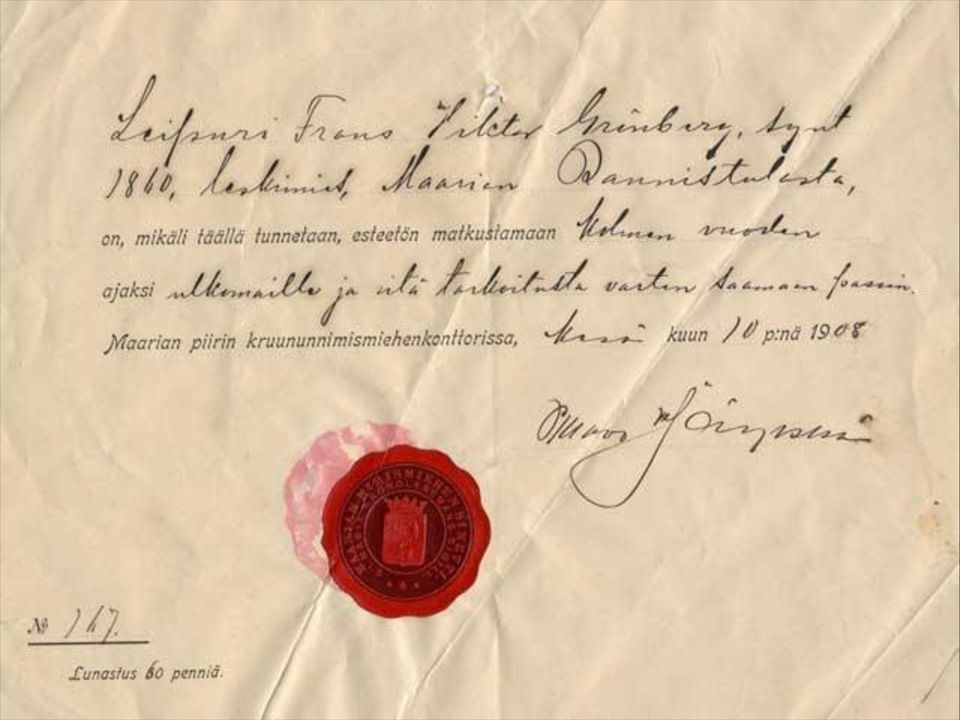 Leipuri Frans Viktor Grönberg, synt
1860, leskimies, Maarian Rannistulasta,
on, mikäli täällä tunnetaan, esteetön matkustamaan kolmen vuoden
ajaksi ulkomaille ja sitä tarkoitusta varten saamaan passin.
Maarian piirin kruununnimismiehenkonttorissa, Kesä kuun 10 p:nä 1908
№ 167.
Lunastus 60 penniä.